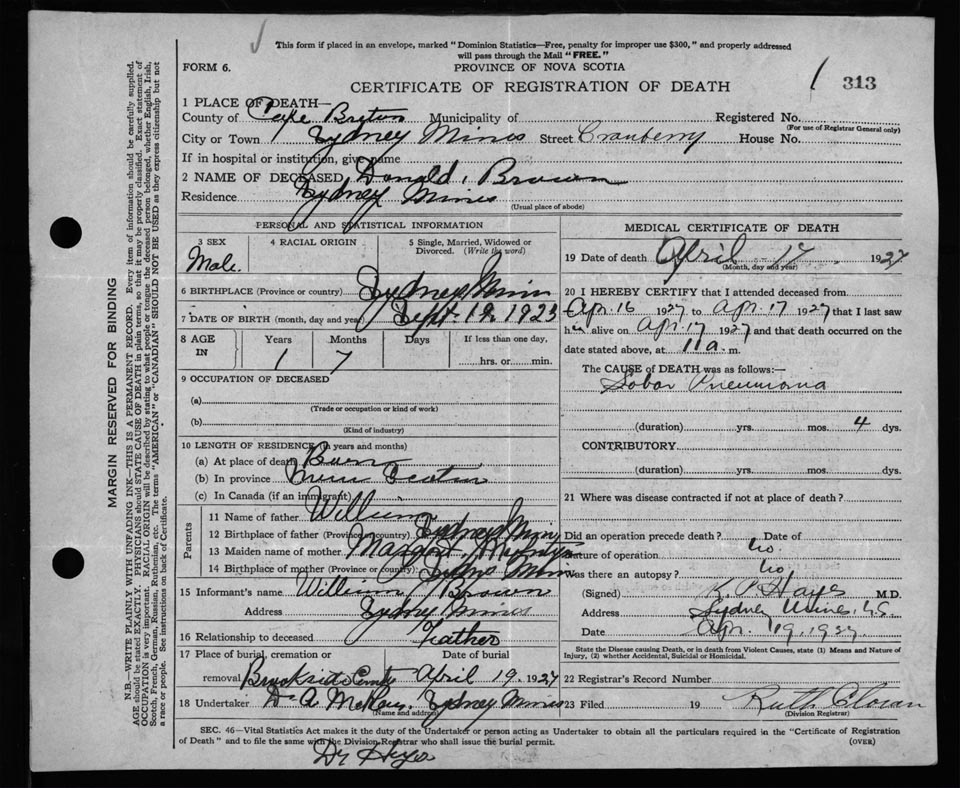 This form if placed in an envelope, marked "Dominion Statistics—Free, penalty for improper use $300," and properly addressed
will pass through the Mail "FREE."
FORM 6.
PROVINCE OF NOVA SCOTIA
CERTIFICATE OF REGISTRATION OF DEATH
313
1 PLACE OF DEATH—
County of Cape Breton Municipality of Registered No.
(For use of Registrar General only)
City or Town Sydney Mines Street Cranberry House No.
If in hospital or institution, give name
2 NAME OF DECEASED Donald Brown
Residence Sydney Mines
(Usual place of abode)
PERSONAL AND STATISTICAL INFORMATION
3 SEX 4 RACIAL ORIGIN 5 Single, Married, Widowed or Divorced. (Write the word)
Male.
6 BIRTHPLACE (Province or country) Sydney Mines
7 DATE OF BIRTH (month, day and year) Sept. 1925
8 AGE IN Years Months Days If less than one day,
1 7 hrs. or min.
9 OCCUPATION OF DECEASED
(a)
(Trade or occupation or kind of work)
(b)
(Kind of industry)
10 LENGTH OF RESIDENCE (in years and months)
(a) At place of death Born
(b) In province Nova Scotia
(c) In Canada (if an immigrant)
Parents
11 Name of father William
12 Birthplace of father (Province or country) Sydney Mines
13 Maiden name of mother Margaret
14 Birthplace of mother (Province or country) Sydney Mines
15 Informant's name William Brown
Address Sydney Mines
16 Relationship to deceased Feather
17 Place of burial, cremation or removal Date of burial
Brookside April 19. 1927
18 Undertaker A. McKay Sydney Mines
(Name and address)
MEDICAL CERTIFICATE OF DEATH
19 Date of death April 17 1927
(Month, day and year)
20 I HEREBY CERTIFY that I attended deceased from
Apr. 16 1927 to Apr. 17 1927 that I last saw
h alive on Apr 17 1927 and that death occurred on the
date stated above, at 11 a. m.
The CAUSE of DEATH was as follows:—
Lobar Pneumonia
(duration) yrs. mos. 4 dys.
CONTRIBUTORY
(duration) yrs. mos. dys.
21 Where was disease contracted if not at place of death?
Did an operation precede death? Date of
No.
Nature of operation
Was there an autopsy? No.
(Signed) K. P. Hayes M.D.
Address Sydney Mines, N.S.
Date Apr. 19, 1927
State the Disease causing Death, or in death from Violent Causes, state (1) Means and Nature of Injury, (2) whether Accidental, Suicidal or Homicidal.
22 Registrar's Record Number
23 Filed 19 Ruth
(Division Registrar)
SEC. 46—Vital Statistics Act makes it the duty of the Undertaker or person acting as Undertaker to obtain all the particulars required in the "Certificate of Registration
of Death" and to file the same with the Division Registrar who shall issue the burial permit. (OVER)
Dr Hayes
MARGIN RESERVED FOR BINDING
N.B.—WRITE PLAINLY WITH UNFADING INK—THIS IS A PERMANENT RECORD. Every item of information should be carefully supplied.
AGE should be stated EXACTLY. PHYSICIANS should STATE CAUSE OF DEATH in plain terms, so that it may be properly classified. Exact statement of
OCCUPATION is very important. RACIAL ORIGIN will be described by stating to what people or tongue the deceased person belonged, whether English, Irish,
Scotch, French, German, Russian, Ruthenian, etc. The terms "AMERICAN" or "CANADIAN" SHOULD NOT BE USED as they express citizenship but not
a race or people. See instructions on back of Certificate.